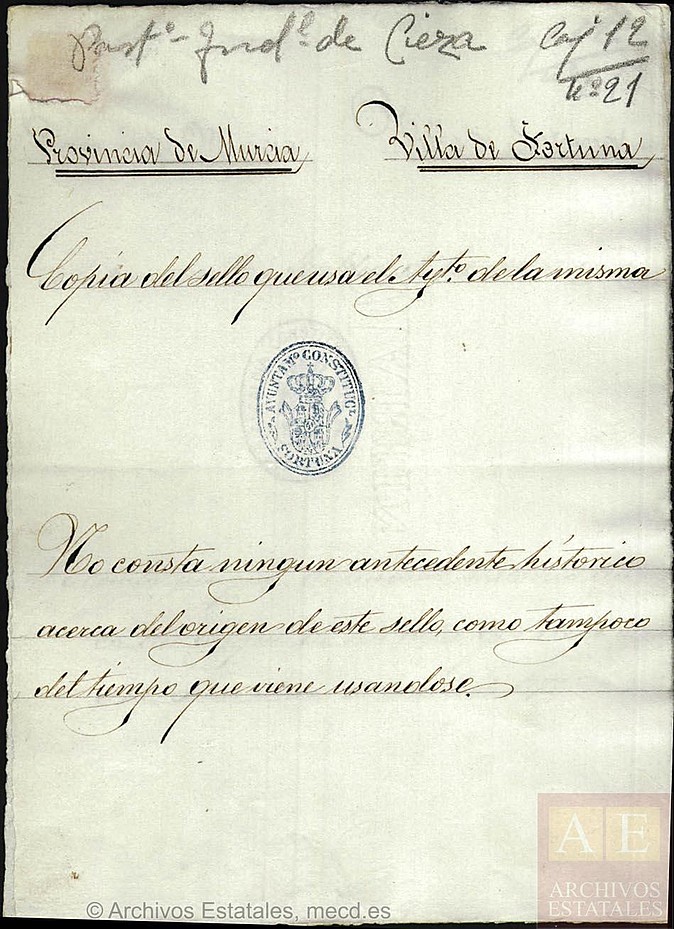 Part.º Jud.l de Cieza Caj 12
nº 21
Provincia de Murcia, Villa de Fortuna,
Copia del sello que usa el Ayt.º de la misma
AYUNTAM.º CONSTITUC.L
FORTUNA
No consta ningun antecedente histórico
acerca del origen de este sello, como tampoco
del tiempo que viene usandose.
A E
ARCHIVOS
ESTATALES
© Archivos Estatales, mecd.es